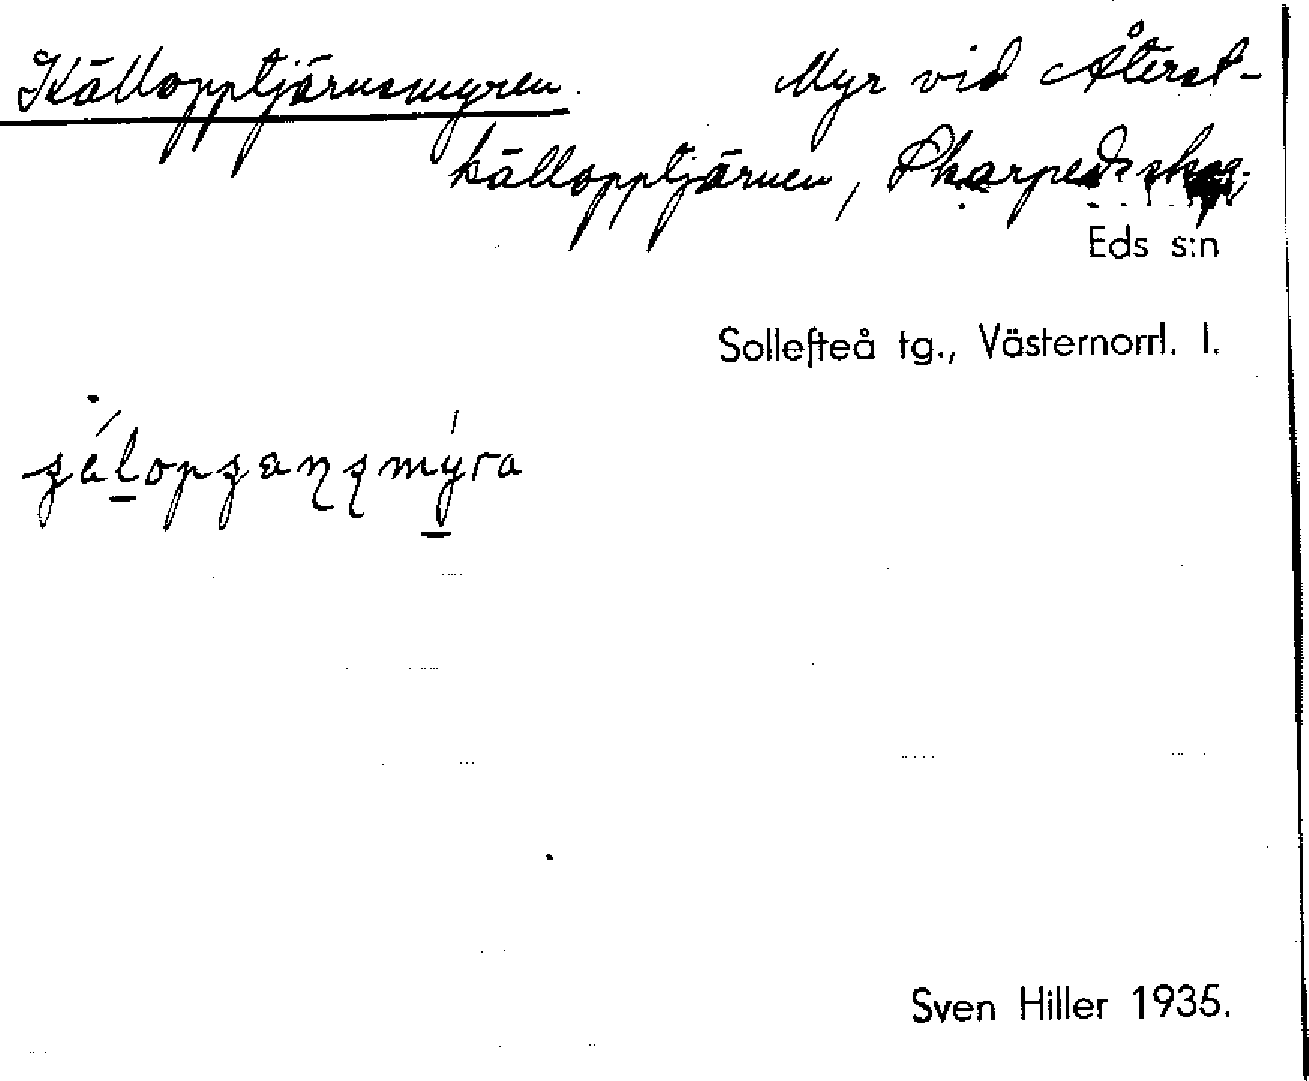 Källopptjärnsmyren. Myr vid Återst-
källopptjärnen, Skarpedsskog,
Eds s:n
Sollefteå tg., Västernorrl. l.
Sven Hiller 1935.